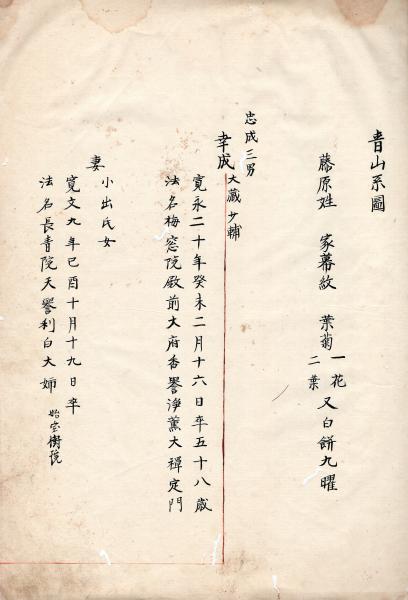 青山系圖
藤原姓 家幕紋 葉菊一花二葉 又白餅九曜
忠成三男
幸成 大蔵少輔
寛永二十年癸未二月十六日卒五十八歳
法名梅窓院殿前大府香譽淨薫大禅定門
妻
小出氏女
寛文九年己酉十月十九日卒
法名長青院天譽利白大姉 始宝樹院